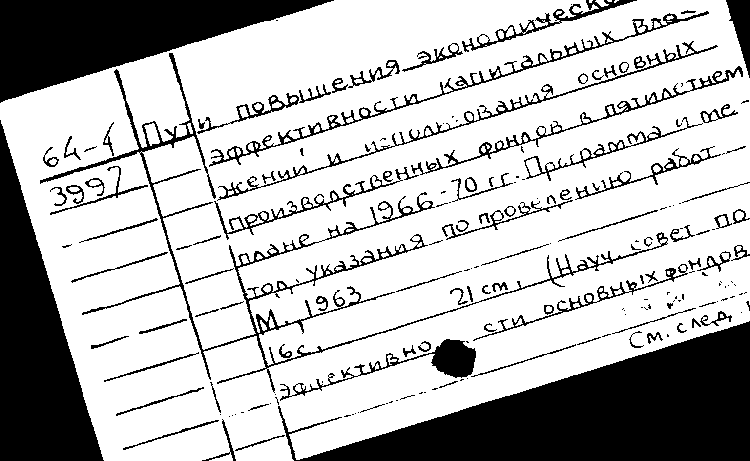 64-4
3997
Пути повышения экономической
эффективности капитальных вло-
жений и использования основных
производственных фондов в пятилетнем
плане на 1966-70 гг. Программа и ме-
тод. указания по проведению работ
М., 1963
16с. 21 см. (Науч. совет по
эффективности основных фондов
См. след.